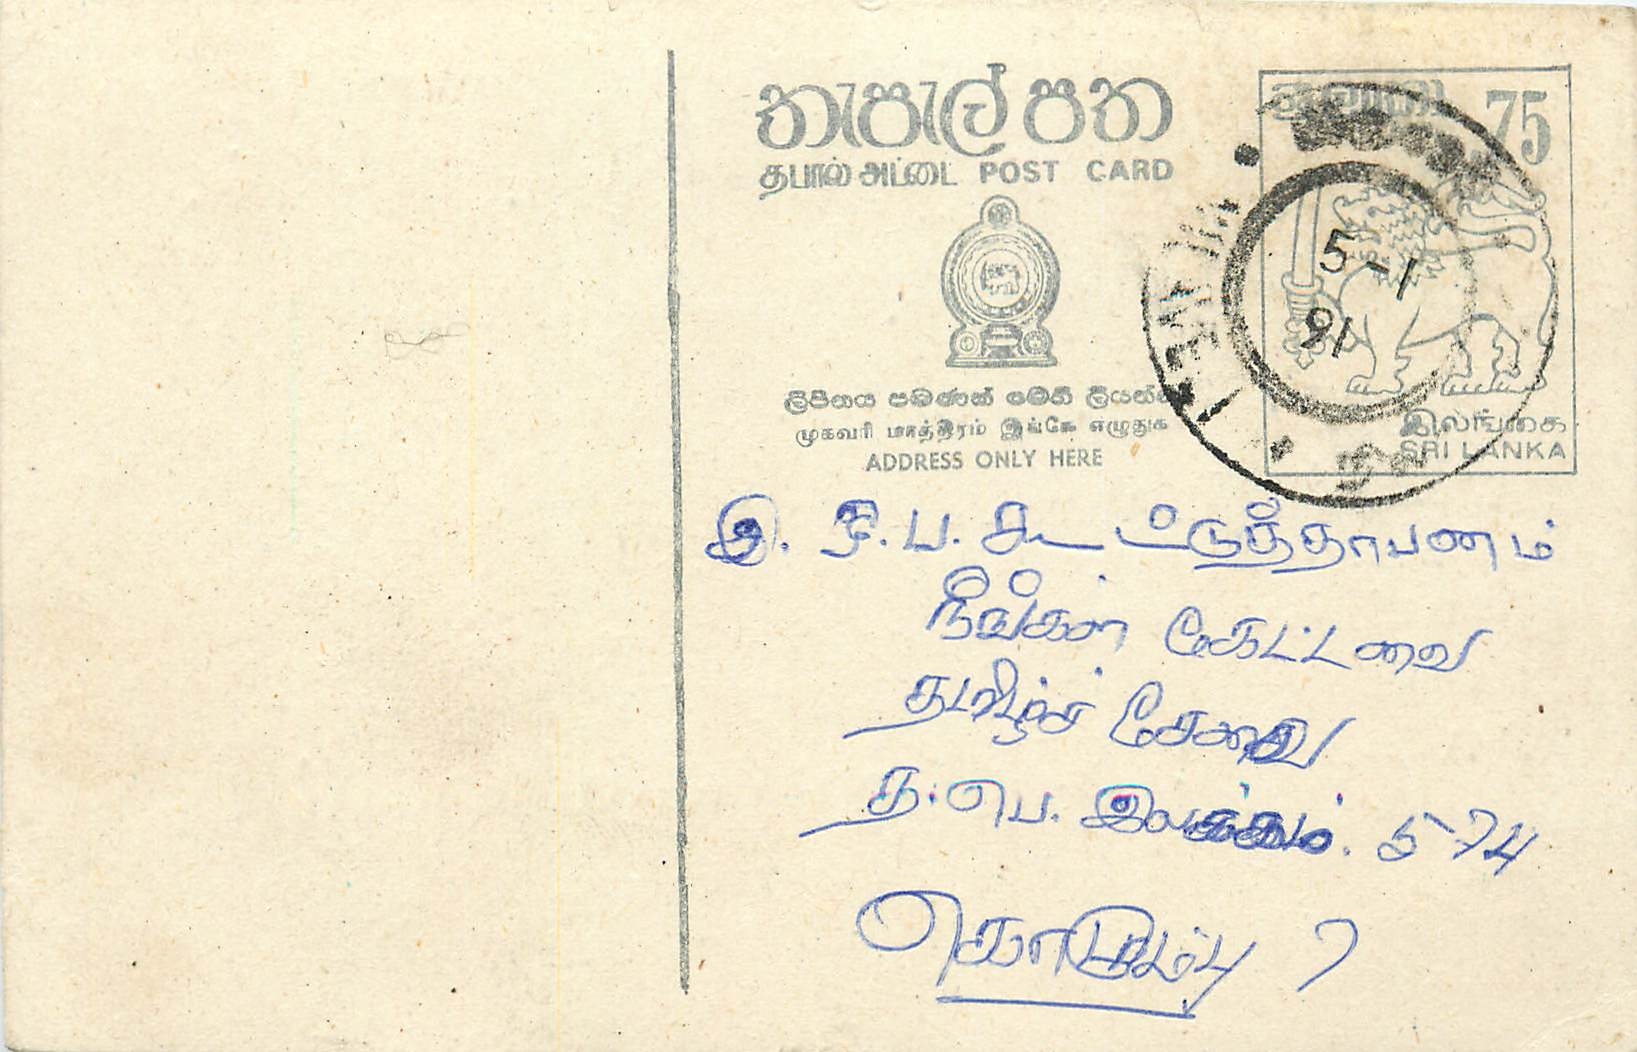 තැපැල් පත
ශ්‍රී ලංකා 75
தபால் அட்டை POST CARD
5-1
91
ලිපිනය පමණක් මෙහි ලියන්න
முகவரி மாத்திரம் இங்கே எழுதுக
ADDRESS ONLY HERE
இலங்கை
SRI LANKA
இ. ஒ. ப. கூட்டுத்தாபணம்
நீங்கள் கேட்டவை
தமிழ்ச் சேவை
த. பெ. இலக்கம். 574
கொழும்பு 7